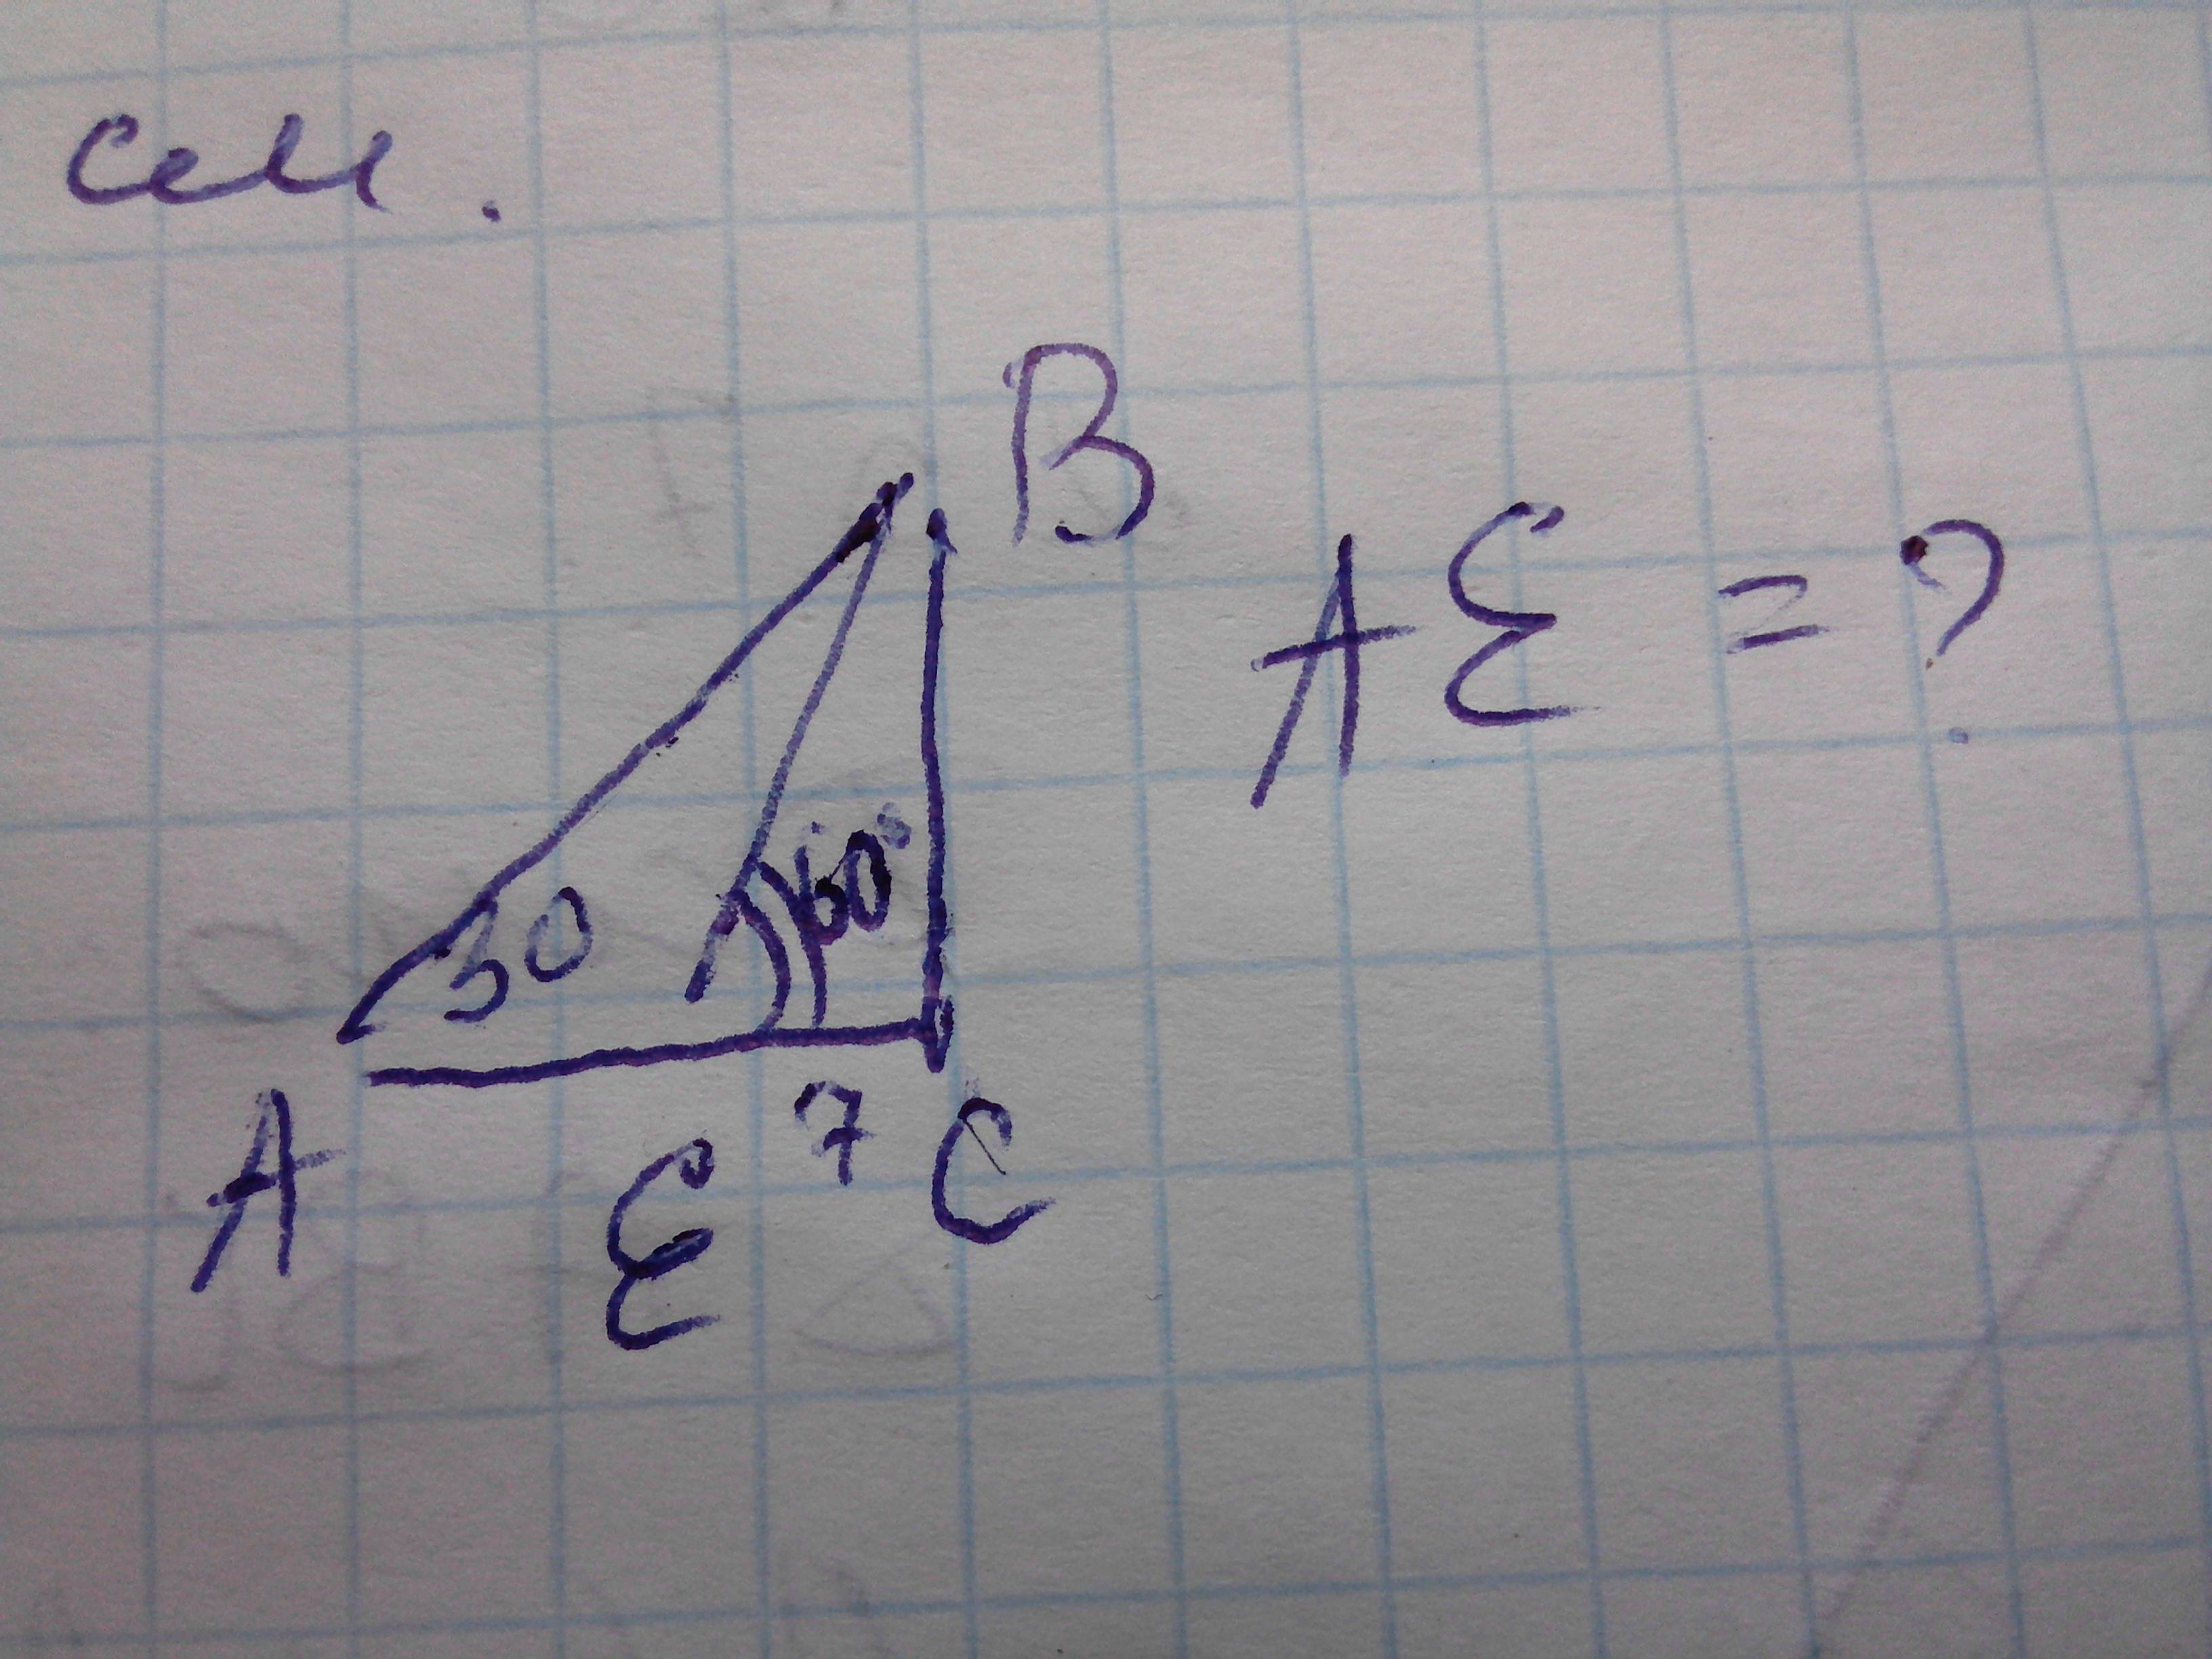 см.
B
AE = ?
30
60°
A
E
7
C